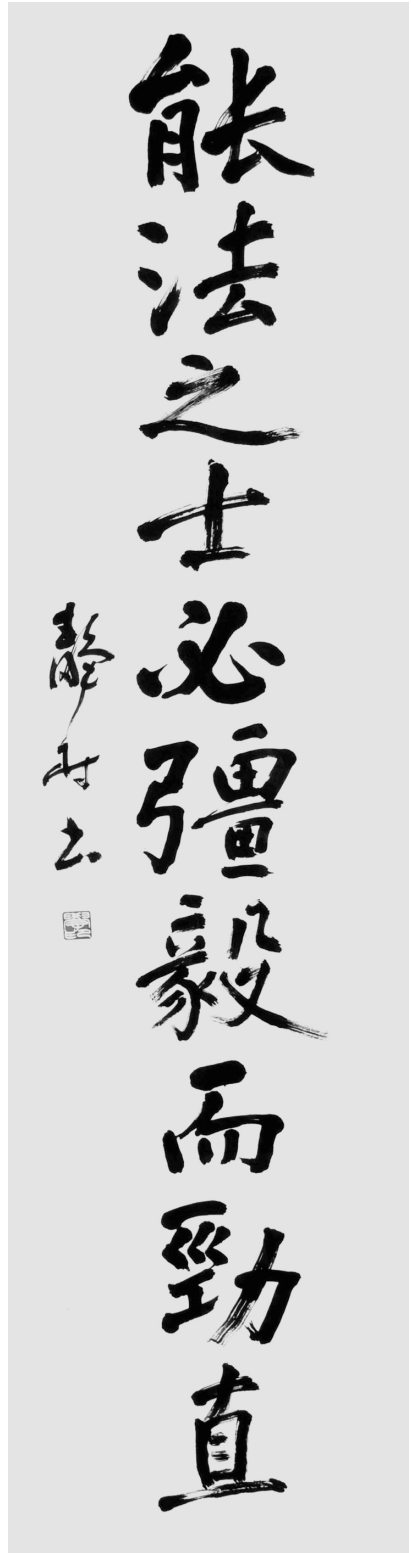 能法之士必彊毅而勁直
靜村书